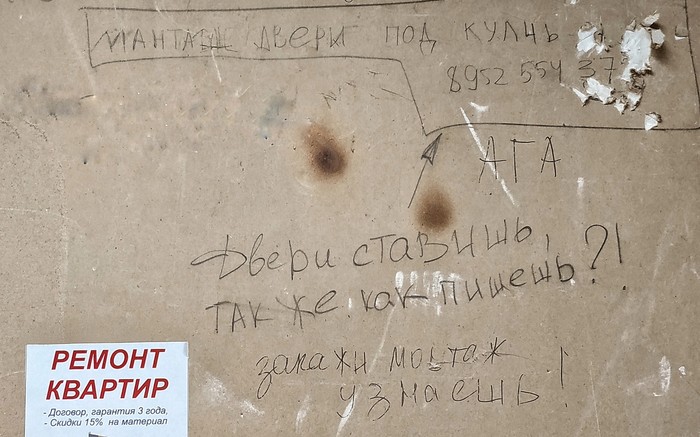 МАНТАЖ ДВЕРИ ПОД КУЛЧЬ
8952 554 37
АГА
Двери ставишь,
ТАК ЖЕ как пишешь?!
закажи монтаж
узнаешь!
РЕМОНТ
КВАРТИР
- Договор, гарантия 3 года,
- Скидки 15% на материал